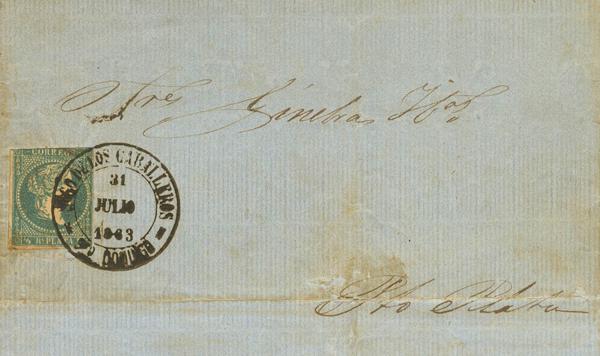 Sres Ginebra Hos
CORREOS
½ Rl PLATA F
SGO DE LOS CABALLEROS
31
JULIO
1863
STO DOMINGO
Pto Plata